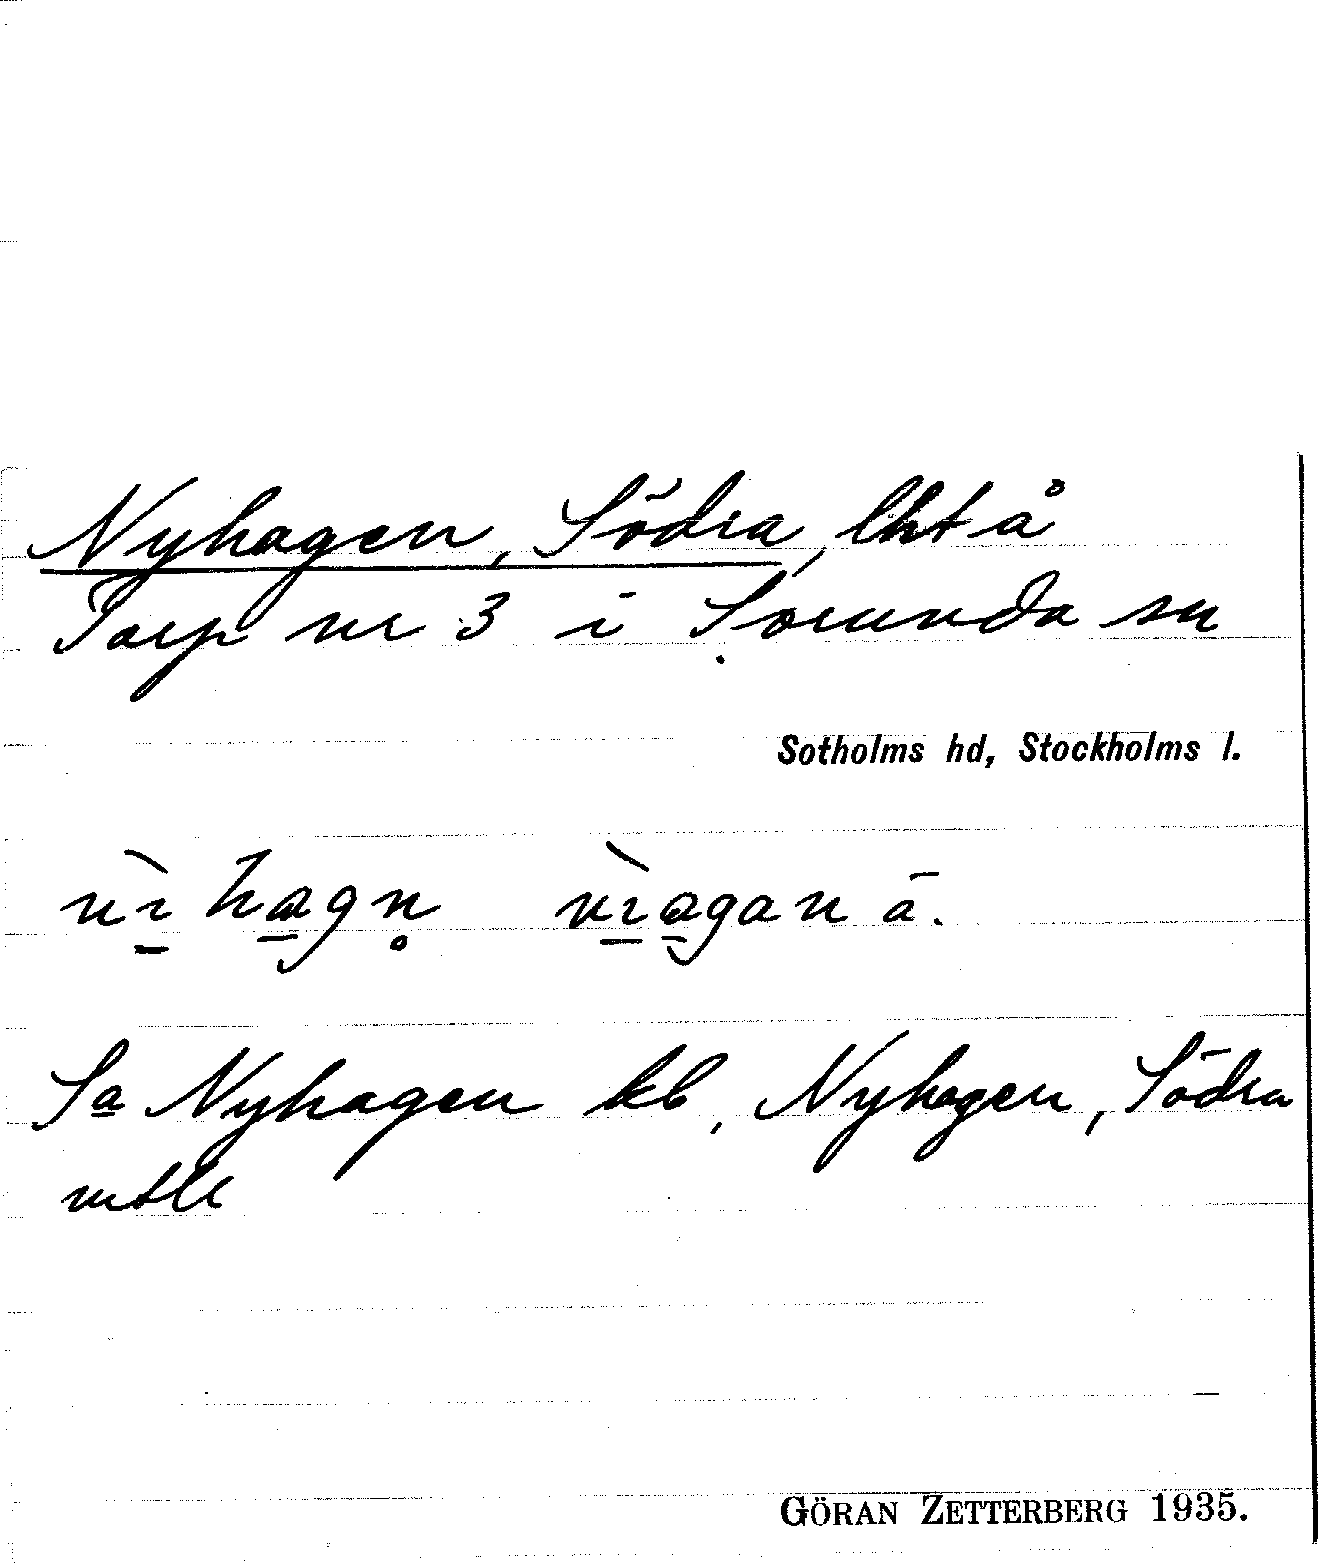 Nyhagen, Södra, lht å
Torp nr 3 i Sorunda sn
Sotholms hd, Stockholms l.
Sa Nyhagen kb, Nyhagen, Södra
mtl
GÖRAN ZETTERBERG 1935.